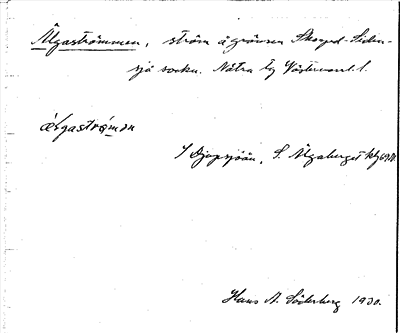 Älgaströmmen, ström å gränsen Skorped-Siden-
sjö socken. Nätra tg Västernorrl. l.
älgaströ̀man
I Djupsjöån, S. Älgaberget
Hans A. Söderberg 1930.